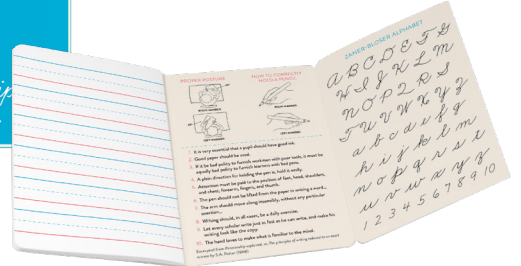 ip
PROPER POSTURE
HOW TO CORRECTLY
HOLD A PENCIL
RIGHT-HANDED
LEFT-HANDED
1. It is very essential that a pupil should have good ink.
2. Good paper should be used.
3. If it be bad policy to furnish workmen with poor tools, it must be
equally bad policy to furnish learners with bad pens.
4. A plain direction for holding the pen is, hold it easily.
5. Attention must be paid to the position of feet, hand, shoulders,
and chest, forearm, fingers, and thumb.
6. The pen should not be lifted from the paper in writing a word,
7. The arm should move along insensibly, without any particular
exertion...
8. Writing should, in all cases, be a daily exercise.
9. Let every scholar write just as fast as he can write, and make his
writing look like the copy.
10. The hand loves to make what is familiar to the mind.
ZANER-BLOSER ALPHABET
A B C D E F G
H I J K L M
N O P Q R S
T U V W X Y Z
a b c d e f g
h i j k l m
n o p q r s t
u v w x y z
1 2 3 4 5 6 7 8 9 10